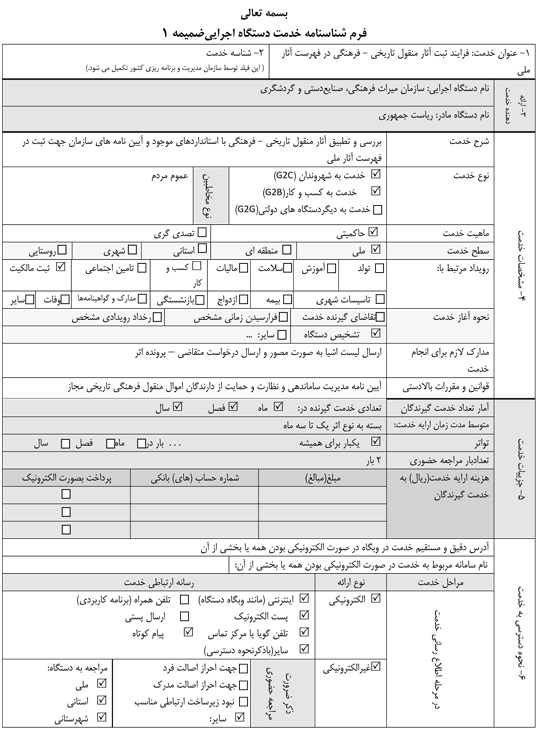 بسمه تعالی
فرم شناسنامه خدمت دستگاه اجرایی‌ضمیمه ۱
۱- عنوان خدمت: فرایند ثبت آثار منقول تاریخی – فرهنگی در فهرست آثار ملی
۲- شناسه خدمت
( این فیلد توسط سازمان مدیریت و برنامه ریزی کشور تکمیل می شود.)
۳- ارائه دهنده خدمت
نام دستگاه اجرایی: سازمان میراث فرهنگی، صنایع‌دستی و گردشگری
نام دستگاه مادر: ریاست جمهوری
۴- مشخصات خدمت
شرح خدمت
بررسی و تطبیق آثار منقول تاریخی – فرهنگی با استانداردهای موجود و آیین نامه های سازمان جهت ثبت در
فهرست آثار ملی
نوع خدمت
☑ خدمت به شهروندان (G2C)
☑ خدمت به کسب و کار(G2B)
☐ خدمت به دیگردستگاه های دولتی(G2G)
نوع مخاطبین
عموم مردم
ماهیت خدمت
☑ حاکمیتی
☐ تصدی گری
سطح خدمت
☑ ملی
☐ منطقه ای
☐ استانی
☐ شهری
☐ روستایی
رویداد مرتبط با:
☐ تولد
☐ آموزش
☐ سلامت
☐ مالیات
☐ کسب و کار
☐ تامین اجتماعی
☑ ثبت مالکیت
☐ تاسیسات شهری
☐ بیمه
☐ ازدواج
☐ بازنشستگی
☐ مدارک و گواهینامه‌ها
☐ وفات
☐ سایر
نحوه آغاز خدمت
☐ تقاضای گیرنده خدمت
☐ فرارسیدن زمانی مشخص
☐ رخداد رویدادی مشخص
☑ تشخیص دستگاه
☐ سایر: ...
مدارک لازم برای انجام خدمت
ارسال لیست اشیا به صورت مصور و ارسال درخواست متقاضی – پرونده اثر
قوانین و مقررات بالادستی
آیین نامه مدیریت ساماندهی و نظارت و حمایت از دارندگان اموال منقول فرهنگی تاریخی مجاز
۵- جزییات خدمت
آمار تعداد خدمت گیرندگان
تعدادی خدمت گیرنده در: ☑ ماه ☑ فصل ☑ سال
متوسط مدت زمان ارایه خدمت:
بسته به نوع اثر یک تا سه ماه
تواتر
☑ یکبار برای همیشه
... بار در: ☐ ماه ☐ فصل ☐ سال
تعدادبار مراجعه حضوری
۲ بار
هزینه ارایه خدمت(ریال) به خدمت گیرندگان
مبلغ(مبالغ)
شماره حساب (های) بانکی
پرداخت بصورت الکترونیک
☐
☐
☐
۶- نحوه دسترسی به خدمت
آدرس دقیق و مستقیم خدمت در وبگاه در صورت الکترونیکی بودن همه یا بخشی از آن
نام سامانه مربوط به خدمت در صورت الکترونیکی بودن همه یا بخشی از آن:
مراحل خدمت
نوع ارائه
رسانه ارتباطی خدمت
در مرحله اطلاع رسانی خدمت
☑ الکترونیکی
☑ اینترنتی (مانند وبگاه دستگاه)
☐ تلفن همراه (برنامه کاربردی)
☑ پست الکترونیک
☐ ارسال پستی
☑ تلفن گویا یا مرکز تماس
☑ پیام کوتاه
☑ سایر(باذکرنحوه دسترسی)
☑ غیرالکترونیکی
ذکر ضرورت مراجعه حضوری
☐ جهت احراز اصالت فرد
☐ جهت احراز اصالت مدرک
☐ نبود زیرساخت ارتباطی مناسب
☑ سایر:
مراجعه به دستگاه:
☑ ملی
☑ استانی
☑ شهرستانی